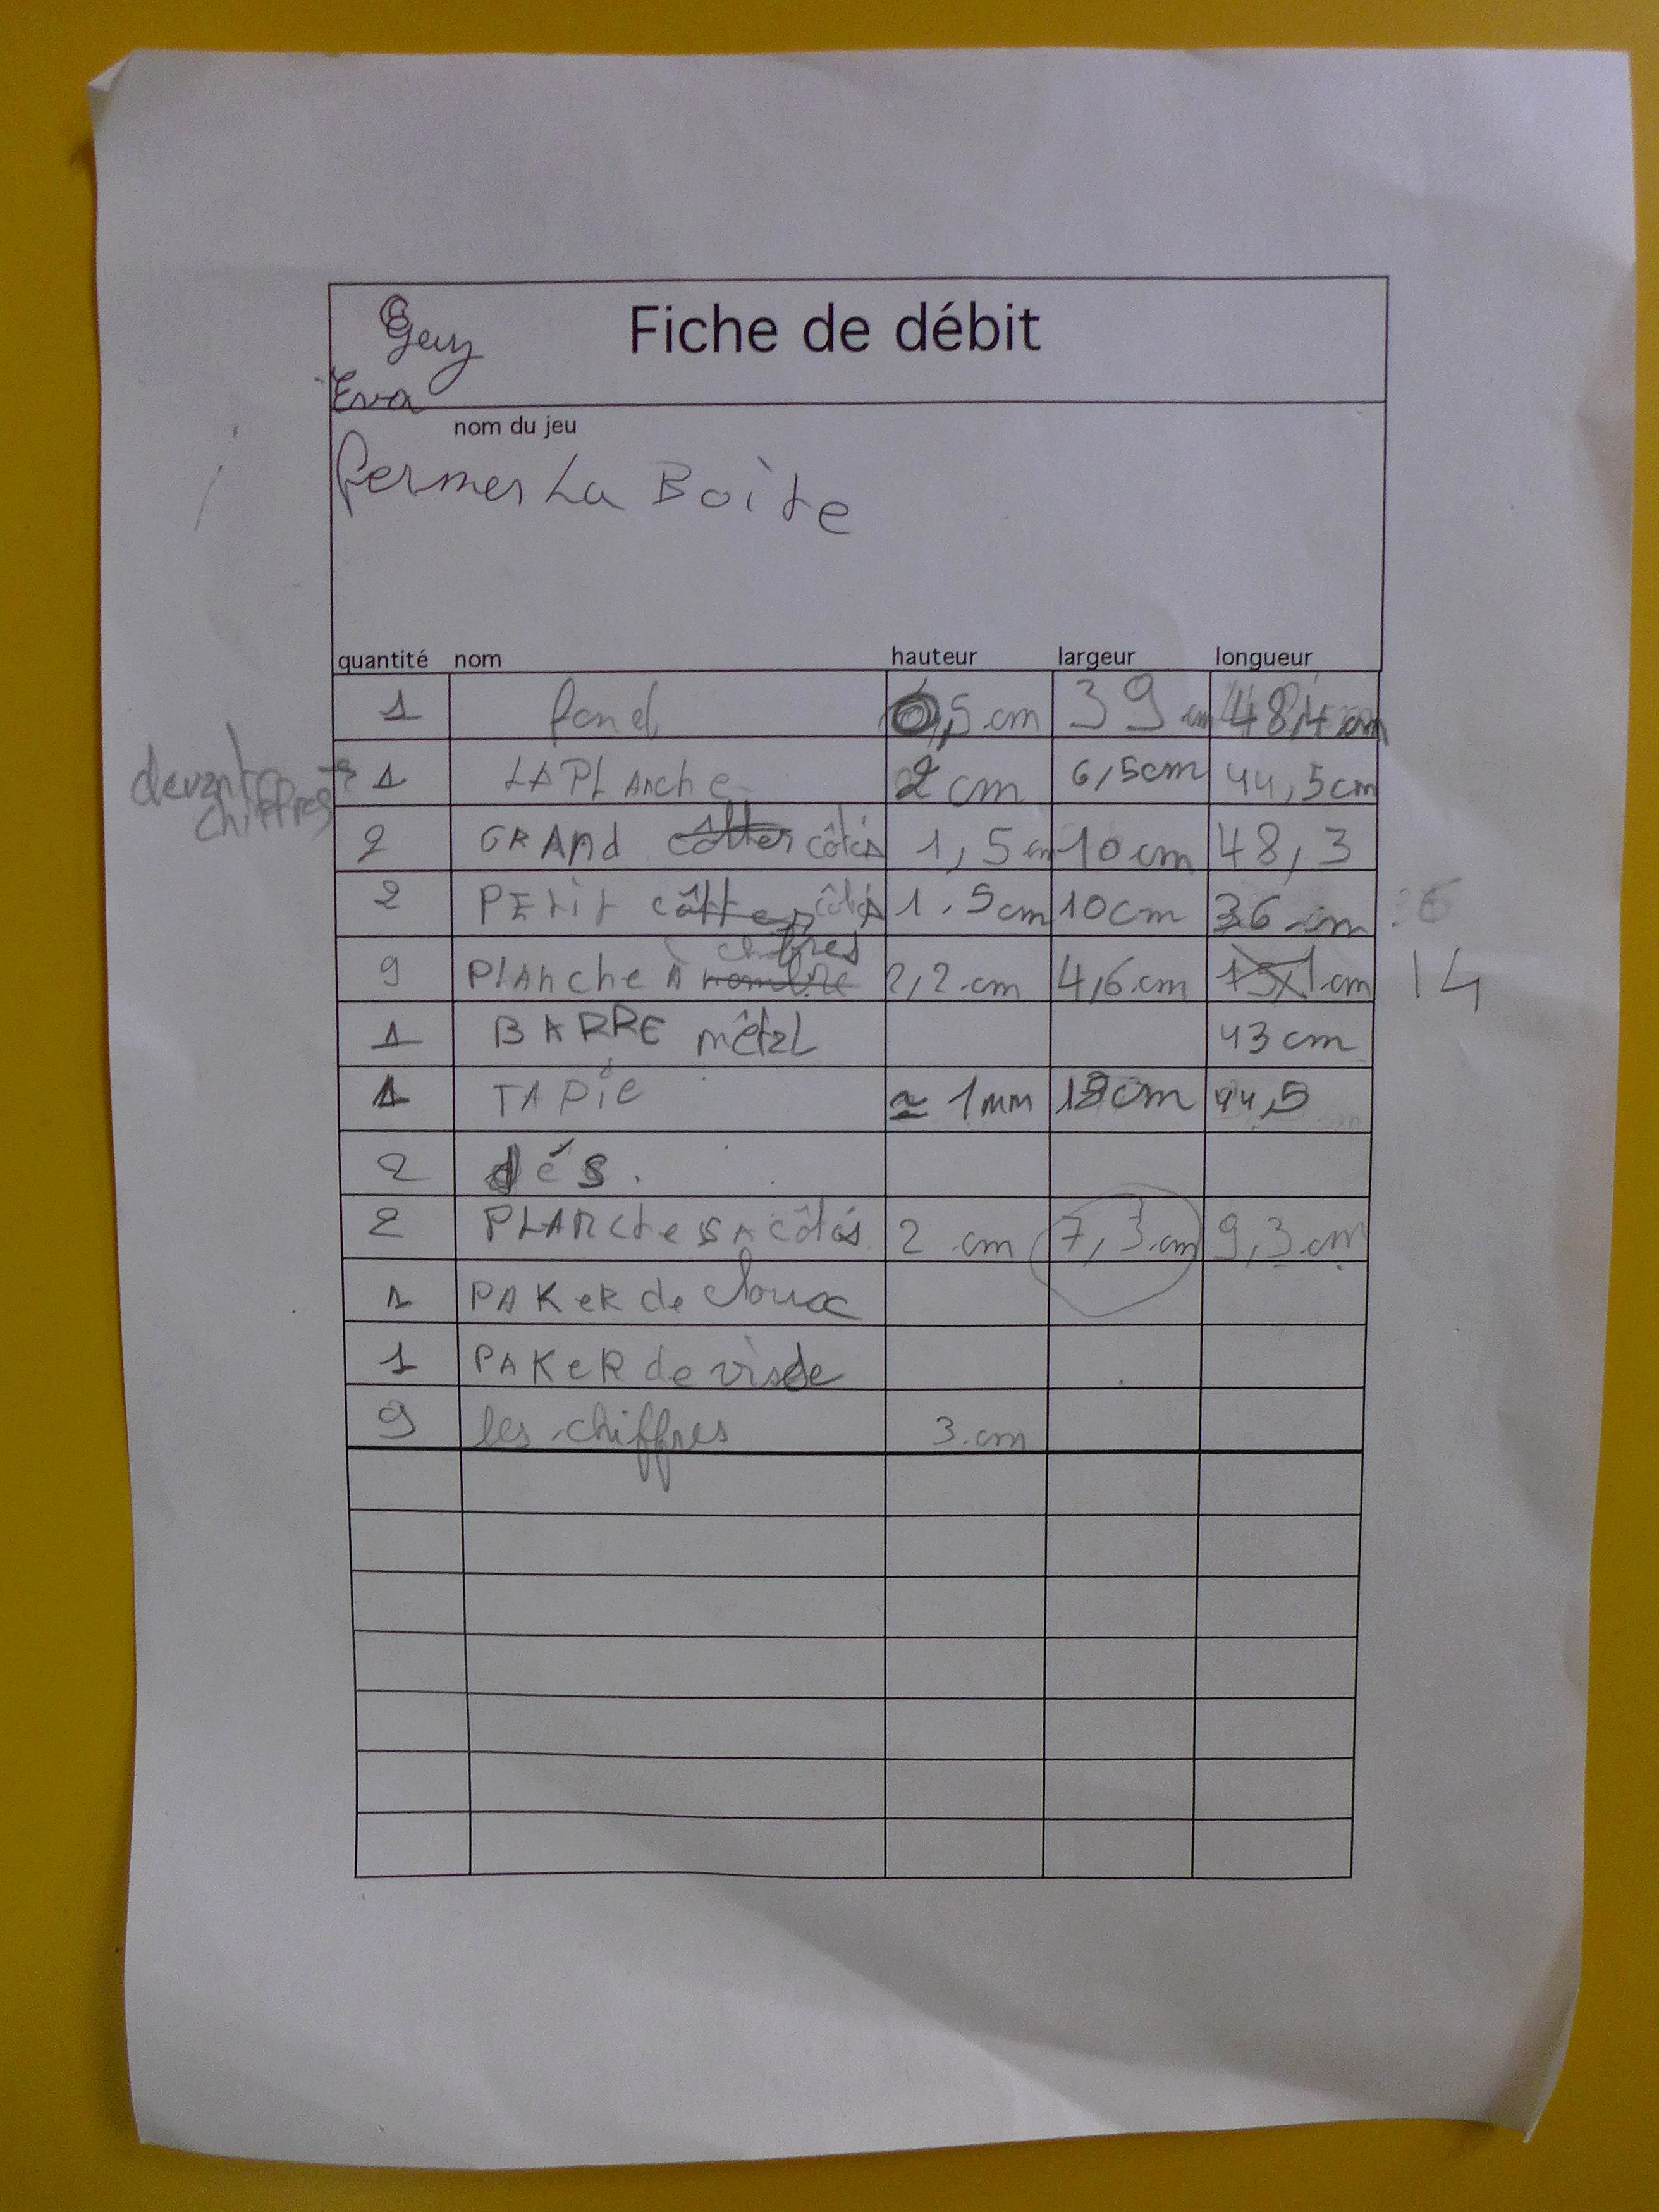 Fiche de débit
Eva
nom du jeu
fermer La Boîte
quantité nom hauteur largeur longueur
1 fond 0,5 cm 39 cm 48,4 cm
devant chiffres → 1 LA PLAnche 2 cm 6,5cm 44,5cm
2 GRAnd côtter côtés 1,5 cm 10 cm 48,3
2 PEtit côtter côtés 1,5cm 10cm 36 cm
9 PlAnche À nombre chiffres 2,2 cm 4,6 cm 15,1 cm 14
1 BARRE métal 43 cm
1 TAPie ≈ 1mm 44,5
2 dés.
2 PLAnches A côtés 2 cm 7,3 cm 9,3 cm
1 PAKeR de cloux
1 PAKeR de
9 les chiffres 3 cm